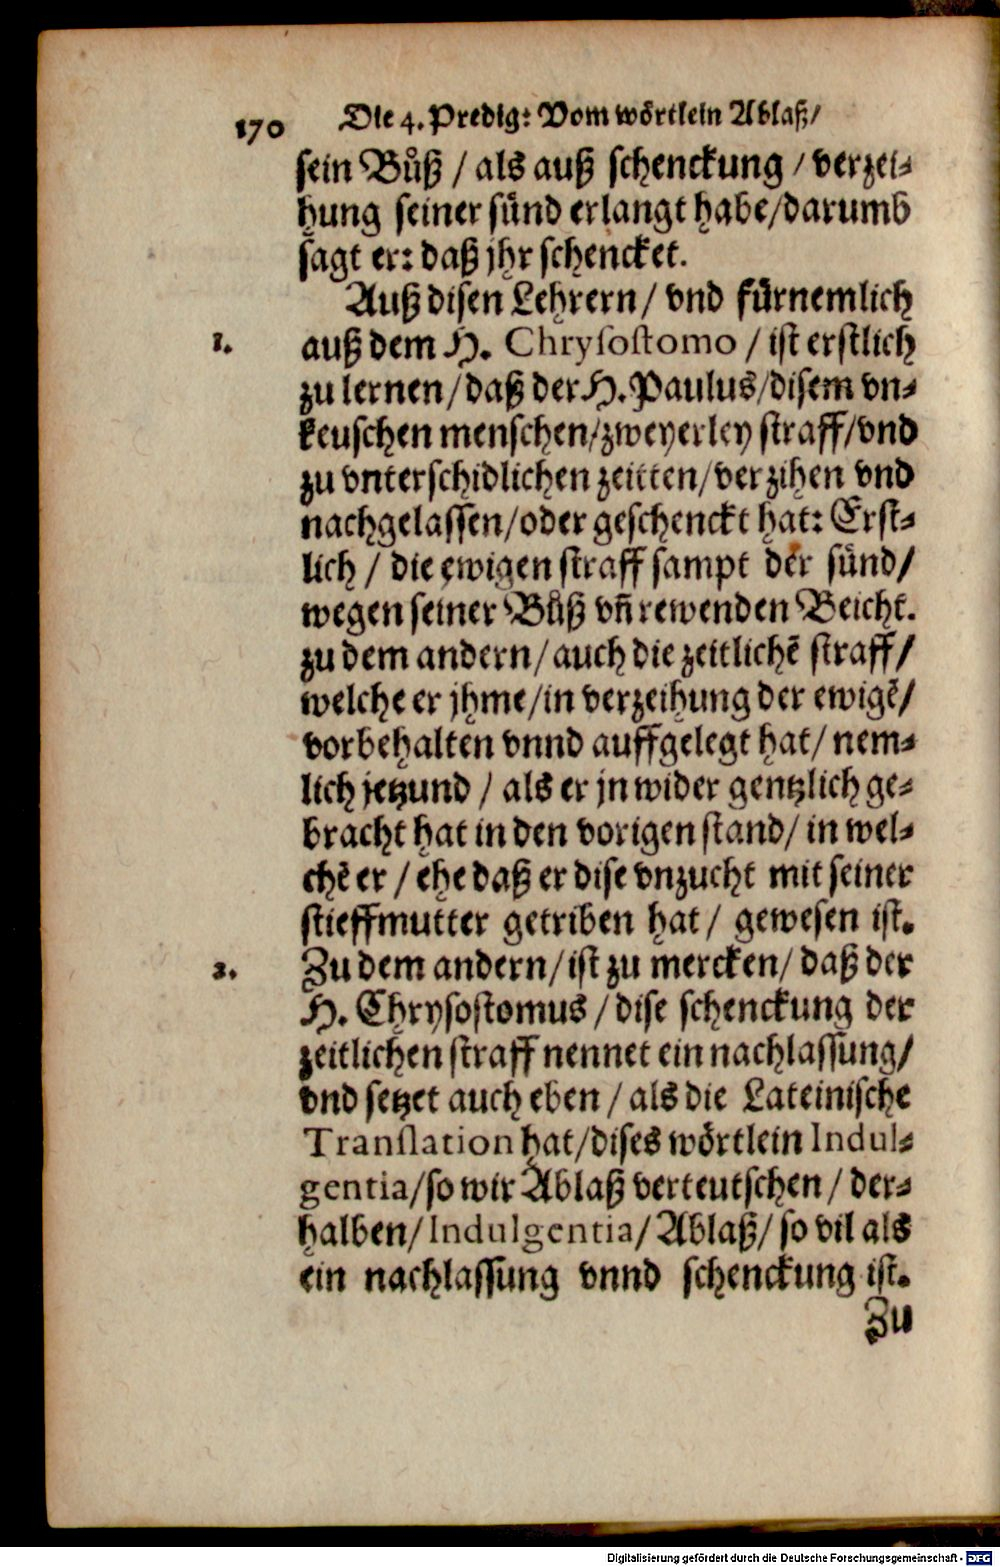 170 Die 4. Predig: Vom wörtlein Ablaß/
sein Bůß / als auß schenckung / verzei-
hung seiner sünd erlangt habe/darumb
sagt er: daß jhr schencket.
Auß disen Lehrern/ vnd fürnemlich
1. auß dem H. Chrysostomo / ist erstlich
zu lernen/daß der H. Paulus/disem vn-
keuschen menschen/zweyerley straff/vnd
zu vnterschidlichen zeitten/verzihen vnd
nachgelassen/oder geschenckt hat: Erst-
lich / die ewigen straff sampt der sünd/
wegen seiner Bůß vñ rewenden Beicht.
zu dem andern/auch die zeitlichẽ straff/
welche er jhme/in verzeihung der ewigẽ/
vorbehalten vnnd auffgelegt hat/ nem-
lich jetzund / als er jn wider gentzlich ge-
bracht hat in den vorigen stand/ in wel-
chẽ er / ehe daß er dise vnzucht mit seiner
stieffmutter getriben hat/ gewesen ist.
2. Zu dem andern/ist zu mercken/ daß der
H. Chrysostomus / dise schenckung der
zeitlichen straff nennet ein nachlassung/
vnd setzet auch eben / als die Lateinische
Translation hat/dises wörtlein Indul-
gentia/so wir Ablaß verteutschen / der-
halben/Indulgentia/Ablaß/ so vil als
ein nachlassung vnnd schenckung ist.
Zu
Digitalisierung gefördert durch die Deutsche Forschungsgemeinschaft - DFG